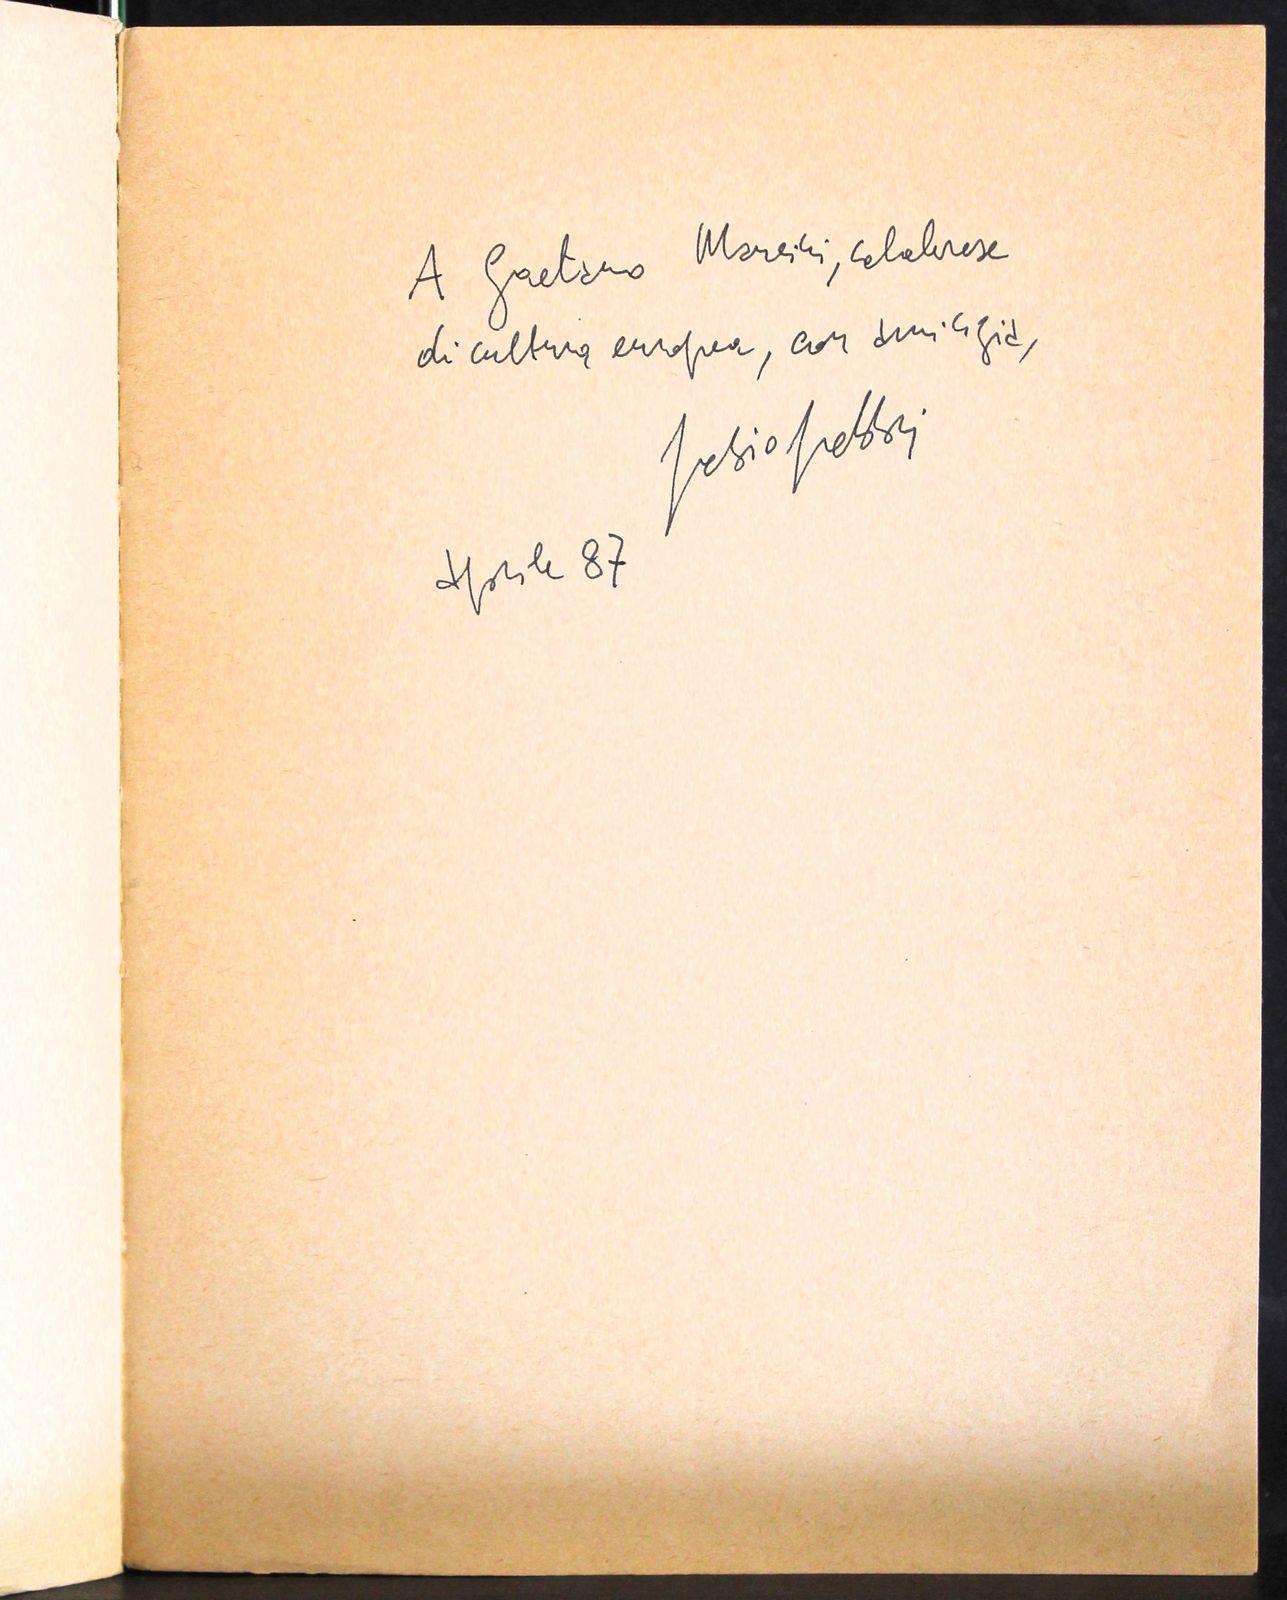 A Gaetano Mancini, calabrese
di cultura europea, con amicizia,
Fabio Fabbri
aprile 87